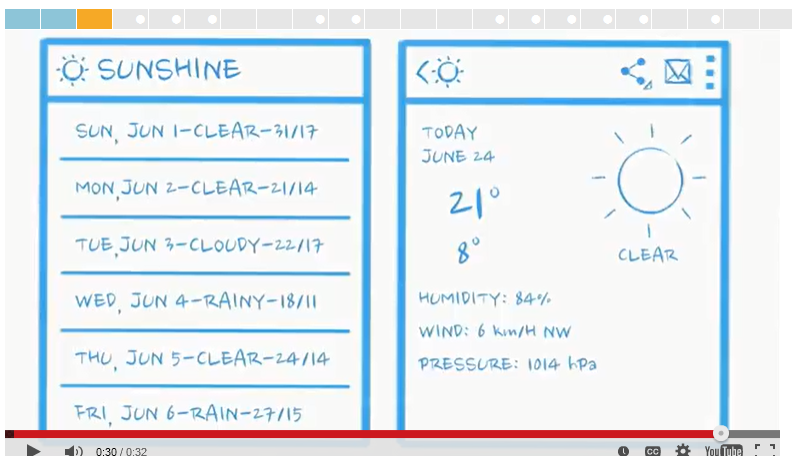 SUNSHINE
SUN, JUN 1-CLEAR-31/17
MON, JUN 2-CLEAR-21/14
TUE, JUN 3-CLOUDY-22/17
WED, JUN 4-RAINY-18/11
THU, JUN 5-CLEAR-24/14
FRI, JUN 6-RAIN-27/15
TODAY
JUNE 24
21°
8°
CLEAR
HUMIDITY: 84%
WIND: 6 km/H NW
PRESSURE: 1014 hPa
0:30 / 0:32
CC
YouTube